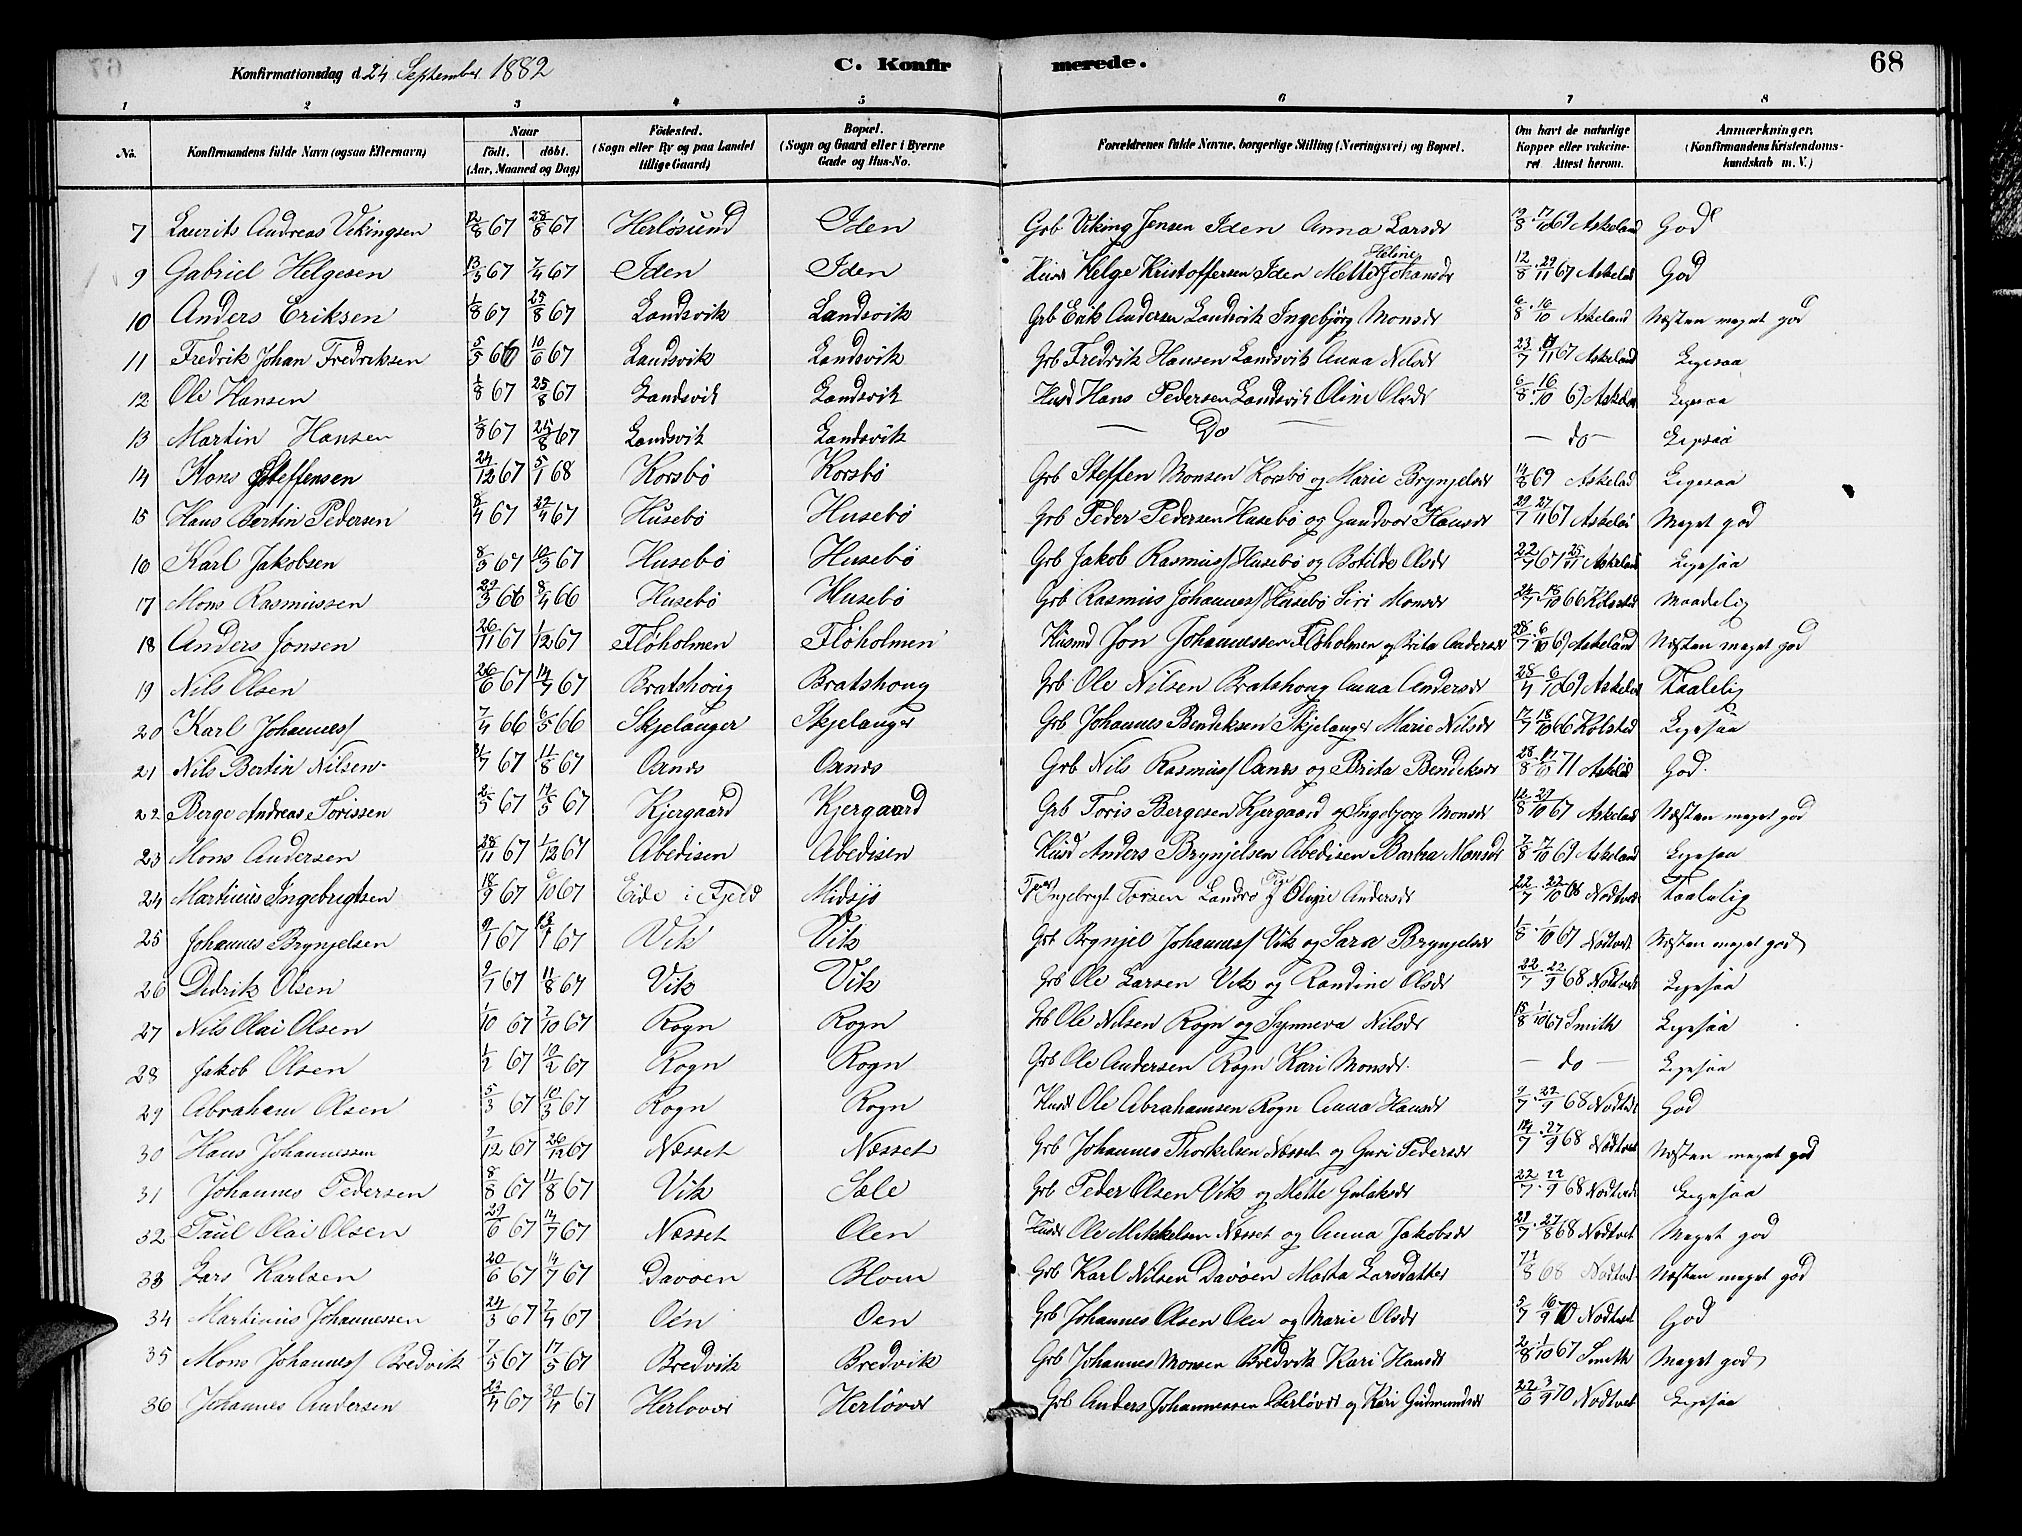 Konfirmationsdag d. 24 September 1882 C. Konfirmerede. 68
1 2 3 4 5 6 7 8
No. Konfirmandens fulde Navn (ogsaa Efternavn) Naar födt. döbt. (Aar, Maaned og Dag) Födested. (Sogn eller By og paa Landet tillige Gaard) Bopæl. (Sogn og Gaard eller i Byerne Gade og Hus-No. Forældrenes fulde Navne, borgerlige Stilling (Næringsvei) og Bopæl. Om havt de naturlige Kopper eller vakcineret Attest herom. Anmærkninger, (Konfirmandens Kristendomskundskab m. V.)
7 Laurits Andreas Vikingsen 12/8 67 28/8 67 Herløsund Iden Grb Viking Jensen Iden Anna Larsdr Askeland God
9 Gabriel Helgesen 13/3 67 7/4 67 Iden Iden Husm Helge Kristoffersen Iden Mette Heline Johansdr 12/8 29/11 67 Askelad God
10 Anders Eriksen 1/8 67 25/8 67 Landsvik Landsvik Grb Erik Andersen Landsvik Ingebjørg Monsdr 6/8 16/10 Askeland Næsten meget god
11 Fredrik Johan Fredriksen 5/5 66 10/6 67 Landsvik Landsvik Grb Fredrik Hansen Landsvik Anna Nilsdr 23/7 67 Askeland Ligesaa
12 Ole Hansen 1/8 67 25/8 67 Landsvik Landsvik Husd Hans Pedersen Landsvik Oline Olsdr 6/8 16/10 67 Askelad Ligesaa
13 Martin Hansen 1/8 67 25/8 67 Landsvik Landsvik — Do — — do — Ligesaa
14 Hans Steffensen 24/12 67 5/1 68 Korsbø Korsbø Grb Steffen Monsen Korsbø og Marie Brynjelsdr 14/8 69 Askelad Ligesaa
15 Hans Bertin Pedersen 8/4 67 22/4 67 Husebø Husebø Grb Peder Pedersen Husebø og Gundvor Hansdr 29/7 27/11 67 Askelad Meget god
16 Karl Jakobsen 8/3 67 10/3 67 Husebø Husebø Grb Jakob Rasmuss Husebø og Botilde Olsdr 22/7 67 25/11 Askeland Ligesaa
17 Mons Rasmussen 29/3 66 8/4 66 Husebø Husebø Grb Rasmus Johanness Husebø Siri Monsdr 24/7 18/10 66 Kolstad Maadelig
18 Anders Jonsen 26/11 67 1/12 67 Fløholmen Fløholmen Husmd Jon Johannessen Fløholmen og Brita Andersdr 28/7 6/10 69 Askeland Næsten meget god
19 Nils Olsen 26/6 67 14/7 67 Bratshoug Bratshoug Grb Ole Nilsen Bratshoug Anna Andersdr 28/4 6/10 69 Askelad Taalelig
20 Karl Johanness 7/4 66 6/5 66 Skjelanger Skjelanger Grb Johannes Bendiksen Skjelanger Marie Nilsdr 17/7 18/10 66 Kolstad Ligesaa
21 Nils Bertin Nilsen 67 11/8 67 Oanes Oanes Grb Nils Rasmuss Oanes og Brita Bendiksdr 28/8 71 Askelad God.
22 Berge Andreas Torissen 2/5 67 19/5 67 Kjergaard Kjergaard Grb Toris Bergesen Kjergaard og Ingebjorg Monsdr 12/8 29/10 67 Askelad Næsten meget god
23 Mons Andersen 28/11 67 1/12 67 Abedisen Abedisen Husd Anders Brynjelsen Abedisen Barbra Monsdr 7/8 7/10 69 Askeland Ligesaa
24 Martinus Ingebrigtsen 18/9 67 6/10 67 Eide i Fjeld Midsjø Ingebrigt Torsen Landro Pige Olivie Andersdr 22/7 22/10 68 Nodtvedt Taalelig
25 Johannes Brynjelsen 9/1 67 13/1 67 Vik Vik Grb Brynjel Johanness Vik og Sara Brynjelsdr 1/8 1/10 67 Nodtvedt Næsten meget god
26 Didrik Olsen 9/7 67 11/8 67 Vik Vik Grb Ole Larsen Vik og Randine Olsdr 22/7 22/9 68 Nodtvedt Ligesaa
27 Nils Olai Olsen 1/10 67 7/10 67 Rogn Rogn Grb Ole Nilsen Rogn og Synneva Nilsdr 15/8 1/10 67 Smith Ligesaa
28 Jakob Olsen 1/2 67 10/2 67 Rogn Rogn Grb Ole Andersen Rogn Kari Monsdr. — do — Ligesaa
29 Abraham Olsen 5/3 67 10/3 67 Rogn Rogn Husd Ole Abrahamsen Rogn Anna Hansdr 9/7 29/9 68 Nodtvedt God
30 Hans Johannessen 9/12 67 26/12 67 Næsset Næsset Grb Johannes Thorkelsen Næsset og Guri Pedersdr 14/7 27/9 68 Nodtvedt Næsten meget god
31 Johannes Pedersen 8/8 67 11/8 67 Vik Sæle Grb Peder Olsen Vik og Mette Gulaksdr 22/7 22/9 68 Nodtvedt Ligesaa
32 Paul Olai Olsen 29/6 67 14/7 67 Næsset Olen Husd Ole Mikkelsen Næsset og Anna Jakobsdr 28/7 27/8 68 Nodtvet Meget god
33 Lars Karlsen 20/6 67 14/7 67 Davøen Blom Grb Karl Nilsen Davøen Marta Larsdatter 68 Nodtvet Næsten meget god
34 Martinus Johannessen 24/3 67 7/4 67 Oen Oen Grb Johannes Olsen Oen og Marie Olsdr 5/7 16/9 70 Nodtvet God
35 Mons Johanness Bredvik 7/5 67 17/5 67 Bredvik Bredvik Grb Johannes Monsen Bredvik Kari Hansdr 2/8 1/10 67 Smith Meget god
36 Johannes Andersen 23/4 67 30/4 67 Herlover Herløver Grb Anders Johannessen Herløver og Kari Gudmundsdr 22/6 3/9 70 Nodtvet Ligesaa